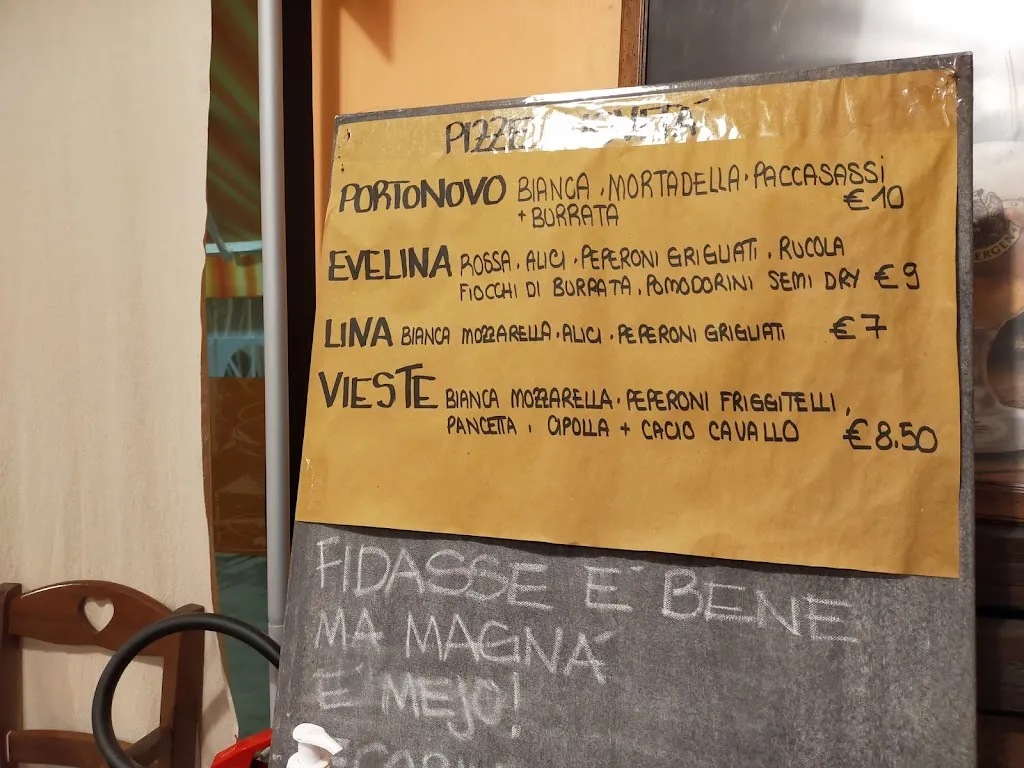 PORTONOVO BIANCA . MORTADELLA . PACCASASSI
+ BURRATA €10
EVELINA ROSSA . ALICI . PEPERONI GRIGLIATI . RUCOLA
FIOCCHI DI BURRATA . POMODORINI SEMI DRY €9
LINA BIANCA MOZZARELLA . ALICI . PEPERONI GRIGLIATI €7
VIESTE BIANCA MOZZARELLA . PEPERONI FRIGGITELLI ,
PANCETTA , CIPOLLA + CACIO CAVALLO €8.50
FIDASSE E' BENE
MA MAGNÁ
E' MEJO!